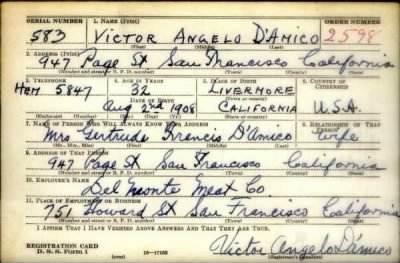 SERIAL NUMBER 1. NAME (Print) ORDER NUMBER
583 VICTOR ANGELO D'AMICO 2598
(First) (Middle) (Last)
2. ADDRESS (Print)
947 Page St San Francisco California
(Number and street or R. F. D. number) (Town) (County) (State)
3. TELEPHONE 4. AGE IN YEARS 5. PLACE OF BIRTH 6. COUNTRY OF CITIZENSHIP
Hem 5847 32 LIVERMORE
DATE OF BIRTH (Town or county)
Aug 22nd 1908 CALIFORNIA U.S.A.
(Exchange) (Number) (Mo.) (Day) (Yr.) (State or country)
7. NAME OF PERSON WHO WILL ALWAYS KNOW YOUR ADDRESS 8. RELATIONSHIP OF THAT PERSON
Mrs Gertrude Francis D'Amico wife
(Mr., Mrs., Miss) (First) (Middle) (Last)
9. ADDRESS OF THAT PERSON
947 Page St San Francisco California
(Number and street or R. F. D. number) (Town) (County) (State)
10. EMPLOYER'S NAME
Del Monte Meat Co
11. PLACE OF EMPLOYMENT OR BUSINESS
751 Howard St San Francisco California
(Number and street or R. F. D. number) (Town) (County) (State)
I AFFIRM THAT I HAVE VERIFIED ABOVE ANSWERS AND THAT THEY ARE TRUE.
REGISTRATION CARD
D. S. S. Form 1 16—17105 Victor Angelo D'Amico
(Registrant's signature)